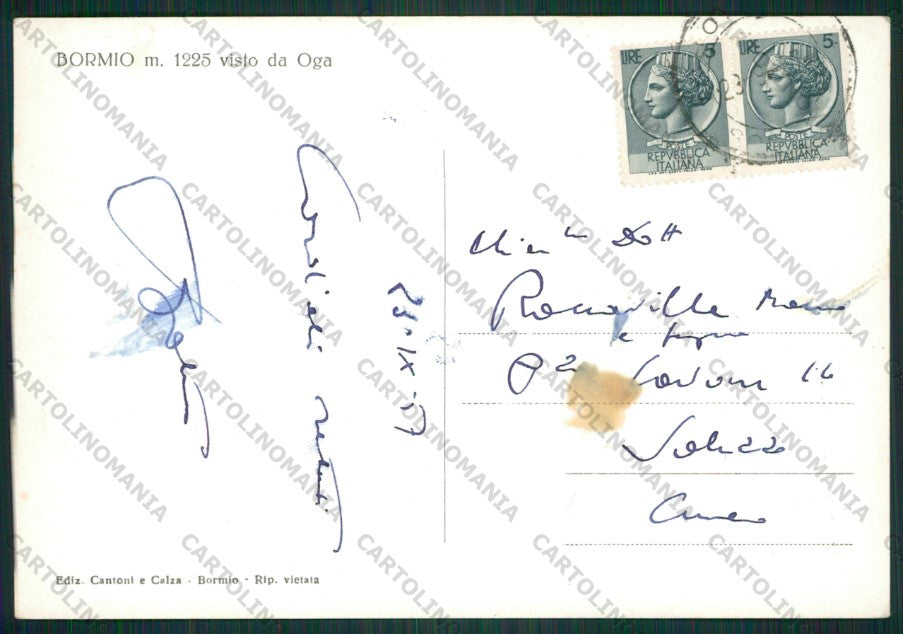 BORMIO m. 1225 visto da Oga
LIRE 5
POSTE
REPVBBLICA
ITALIANA
LIRE 5
POSTE
REPVBBLICA
ITALIANA
23
Cordiali saluti
Dott
Roccavilla
e Signora
Pza Cavour 16
Saluzzo
Cuneo
Ediz. Cantoni e Calza - Bormio - Rip. vietata
CARTOLINOMANIA